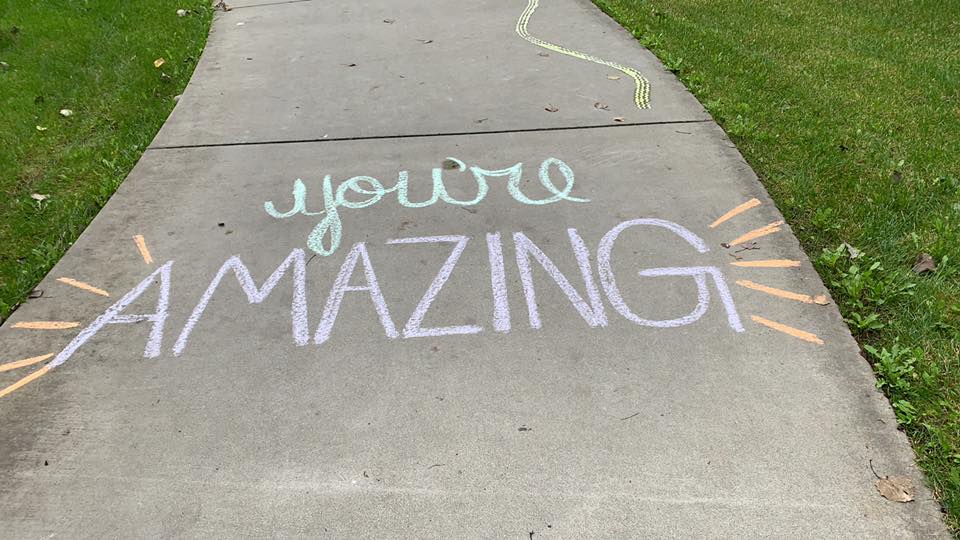 you're
AMAZING